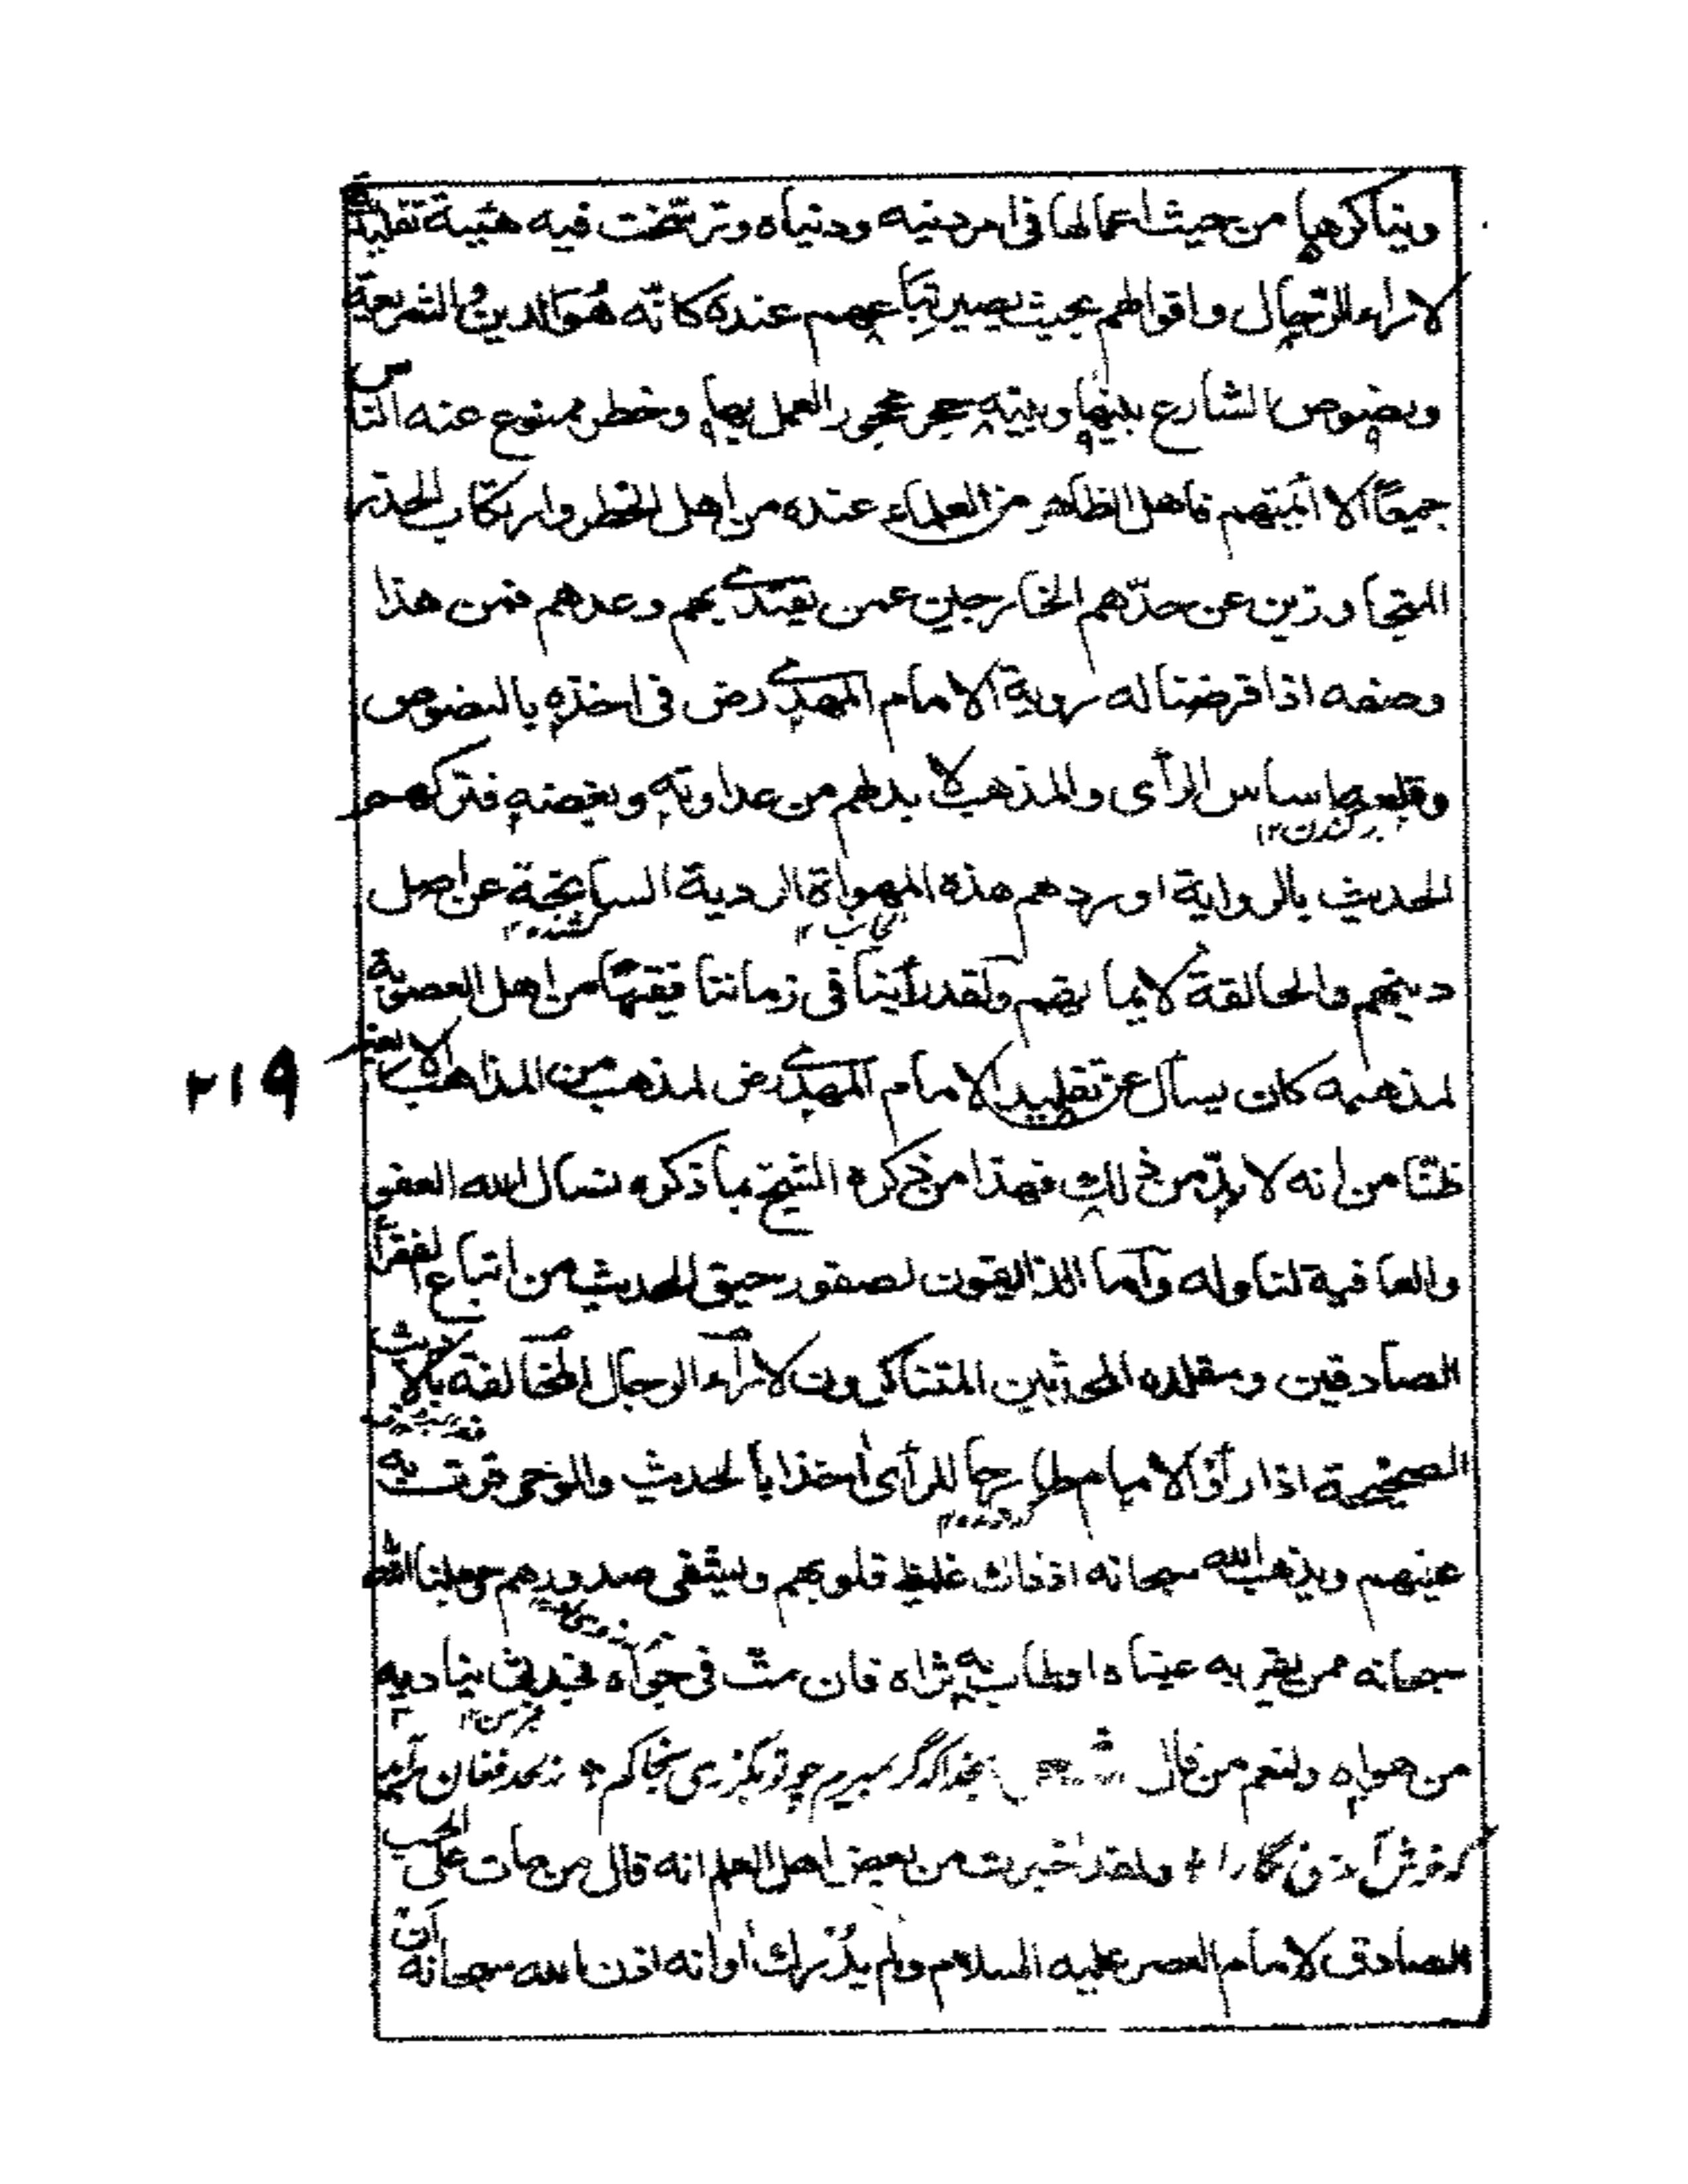 ويناكرها من حيث اعمالها في امر دينه ودنياه وترسخت فيه هيبة تقليده
لاراء الرجال واقوالهم بحيث يصير اتباعهم عنده كانّه هُوَ الدين والشريعة
ونصوص الشارع بينها وبينه حجر محجور العمل بها وخطر ممنوع عنه الناس
جميعًا الا ائمتهم فاهل الظاهر من العلماء عنده من اهل الخطر وارتكاب الحذر
المتجاوزين عن حدّهم الخارجين عمن يقتدى بهم وعدهم فمن هذا
وصفه اذا فرضنا له روية الامام المهدى رض في اخذه بالنصوص
وقلعه اساس الرأى والمذهب لا بد لهم من عداوته وبغضه فتركهم
الحديث بالرواية اوردهم هذه المهواة الردية السائخة عن اصل
دينهم والحالقة لايمانهم ولقد رأينا في زماننا فقيهًا من اهل العصوبة
لمذهبه كان يسأل عن تقليد الامام المهدى رض لمذهب من المذاهب الاربعة
ظنّا من انه لا بدّ من ذلك فهذا من ذكره الشيخ بما ذكره نسال الله العفو
والعافية لنا وله وآما الذائقون لصفو رحيق الحديث من اتباع الفقراء
الصادقين ومقلده المحدثين المتناكرون لاراء الرجال المخالفة بالاحاديث
الصحيحة اذا رأوا الامام طارحا للرأى اخذا بالحديث والوحى قرت به
عينهم ويذهب الله سبحانه اذ ذاك غليظ قلوبهم وليشفى صدورهم جعلنا الله
سبحانه ممن يقر به عيناه اوطاب به ثراه فان مت في جواه فخدني ينادیه
من هواه ولنعم من قال شعر بخدا اگر بميرم چو تو بگذرى بخاكم * ز لحد فغان برآيد
كه خوش آمدى نگارا * ولقد اخبرت من بعض اهل العلم انه قال من مات على الحب
الصادق لامام العصر عليه السلام ولم يدرك اوانه اذن الله سبحانه ان
۲۱۹